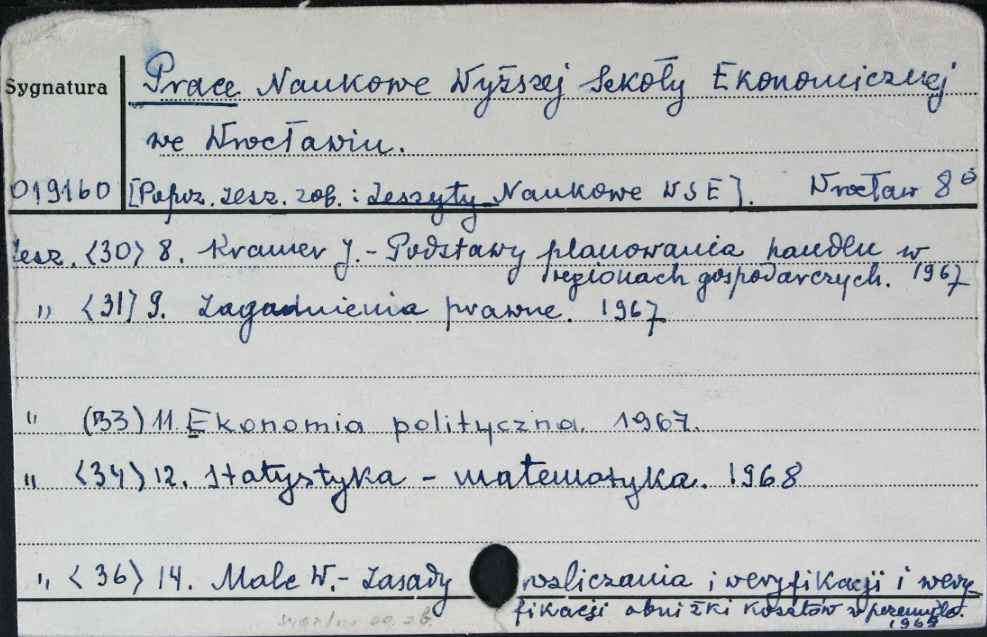 Sygnatura
Prace Naukowe Wyższej Szkoły Ekonomicznej
we Wrocławiu.
019160 [Poprz. zesz. zob. : Zeszyty Naukowe WSE]. Wrocław 8°
Zesz. <30> 8. Kramer J. - Podstawy planowania handlu w
regionach gospodarczych. 1967
" <31> 9. Zagadnienia prawne. 1967
" (33) 11. Ekonomia polityczna. 1967.
" <34> 12. Statystyka - matematyka. 1968
" <36> 14. Malc W. - Zasady rozliczania i weryfikacji i wery-
fikacji obniżki kosztów w przemyśle.